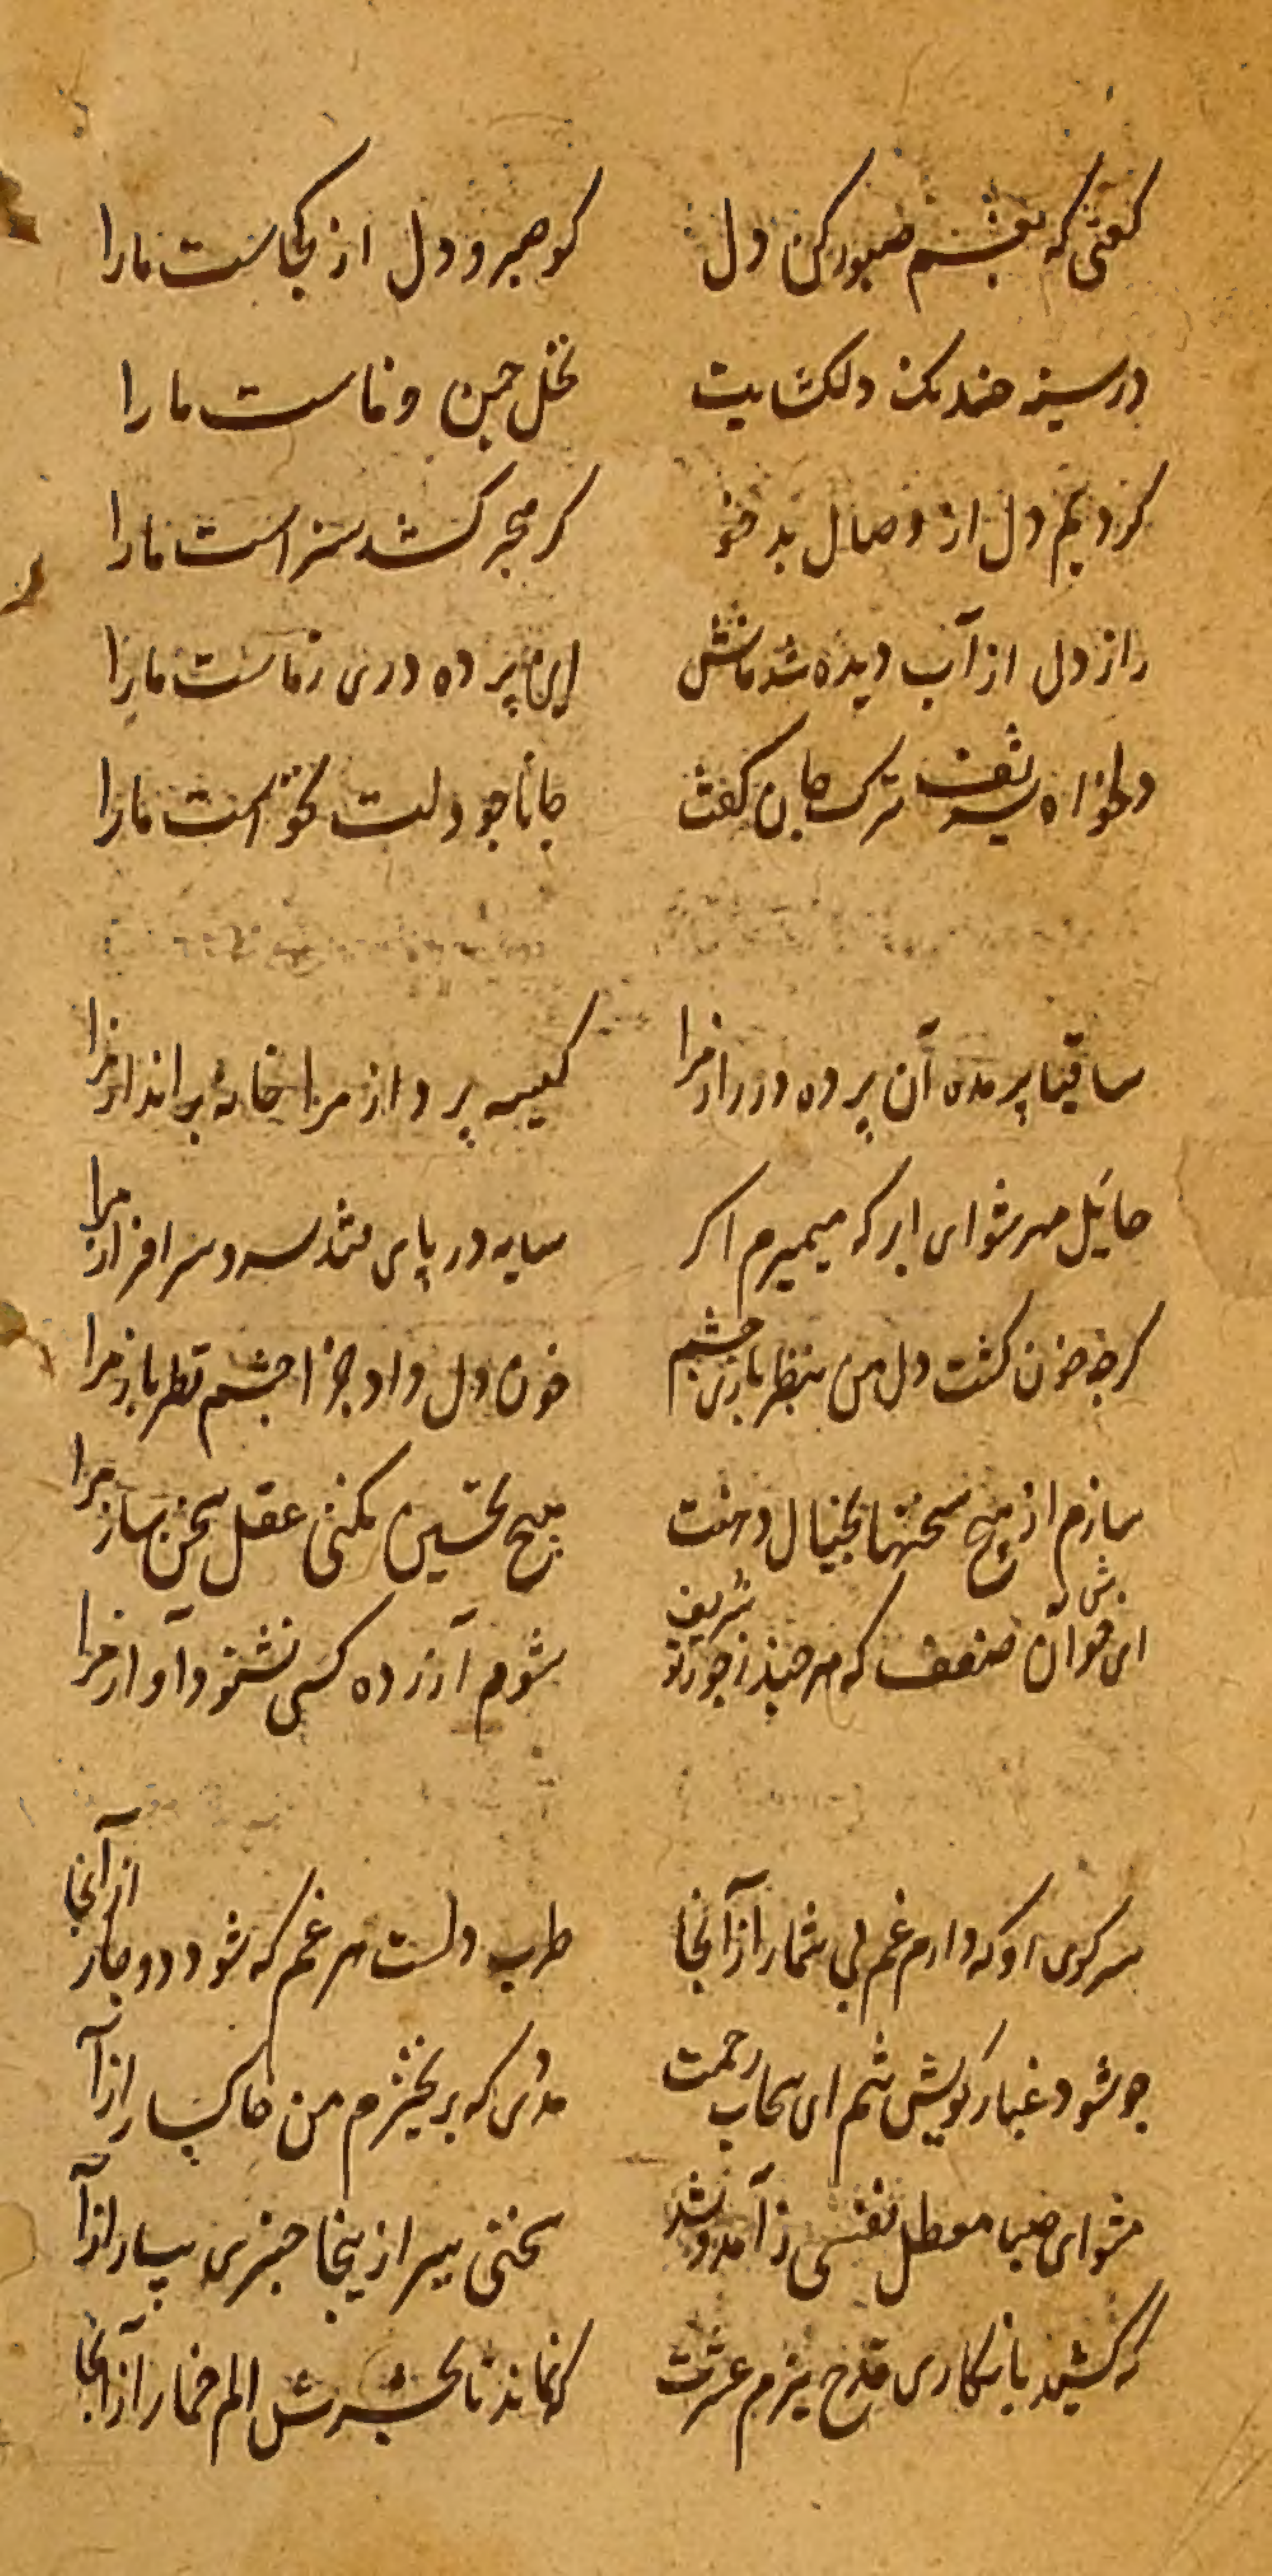 گفتی که بغشم صبور کن دل
کو صبر و دل از کجاست ما را
در سینه خدنک دلکشایت
نخل چمن وفاست ما را
کردیم دل از وصال بد خو
کر هجر کشد سزاست ما را
راز دل از آب دیده شد فاش
این پرده دری زماست ما را
دلخواه شریف ترک جان گفت
جانا چو دلت نخواست ما را
ساقیا پرمده آن پرده در راز مرا
کیسه پرداز مرا خانه برانداز مرا
حایل مهر شو ای ابر که میمیرم اکر
سایه در پای فتد سرو سرافراز مرا
کرچه خون کشت دل من بنظر بازی چشم
خون دل داد جزا چشم نظر باز مرا
سازم از هیچ سخنها بخیال دهنت
هیچ تحسین نکنی عقل سخن ساز مرا
ای خوش آن ضعف که هر چند ز جور تو شریف
شوم آزرده کسی نشنود آواز مرا
سر کوی او که دارم غم بی شمار از آنجا
طرب دلست هر غم که شود دوچار از آنجا
چو شود غبار کویش شم ای سحاب رحمت
مددی که بر نخیزم من خاکسار از آ
مشو ای صبا معطل نفسی ز آمد و شد
سخنی ببر ازینجا خبری بیار از آ
که کشید با نکاری قدح ببزم عشرت
که نماند تا بحشرش الم خمار از آنجا